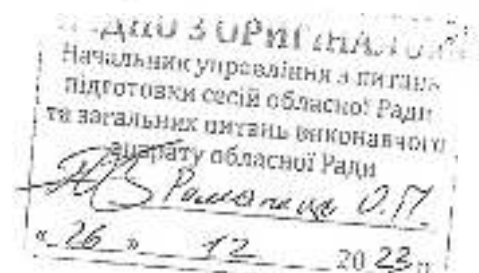 З ОРИГІНАЛОМ
Начальник управління з питань
підготовки сесій обласної Ради
та загальних питань виконавчого
апарату обласної Ради
О.П.
« 26 » 12 2023